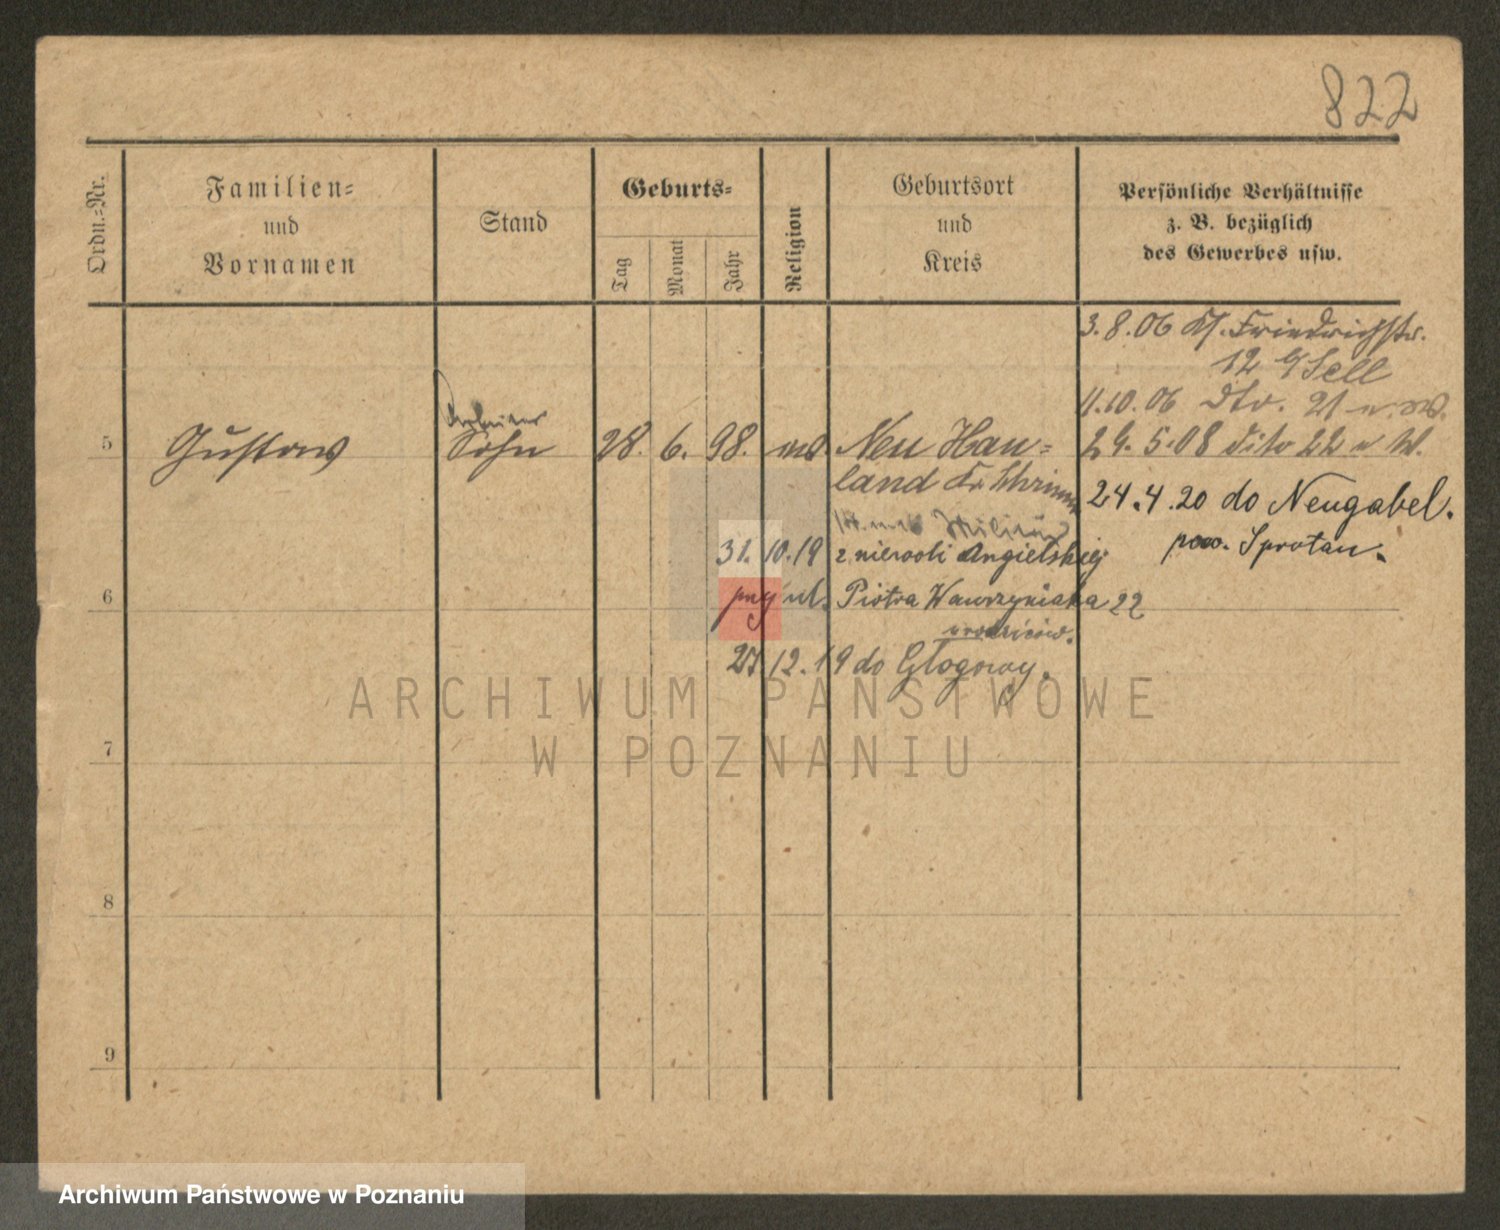 822
Ordn.=Nr.
Familien=
und
Vornamen
Stand
Geburts=
Tag
Monat
Jahr
Religion
Geburtsort
und
Kreis
Persönliche Verhältnisse
z. B. bezüglich
des Gewerbes usw.
3.8.06 Kl. Friedrichstr.
12 Sell
11.10.06 dto. 21
5 Gustav Sohn 28. 6. 98. Neu Hau=
29. 5. 08 dito 22
land Kr. Schrimm
24.4.20 do Neugabel.
pow. Sprotau.
Militär
31. 10. 19 z niewoli Angielskiej
6
ul. Piotra Wawrzyniaka 22
27 12. 19 do Głogowy.
ARCHIWUM PAŃSTWOWE
W POZNANIU
7
8
9
Archiwum Państwowe w Poznaniu